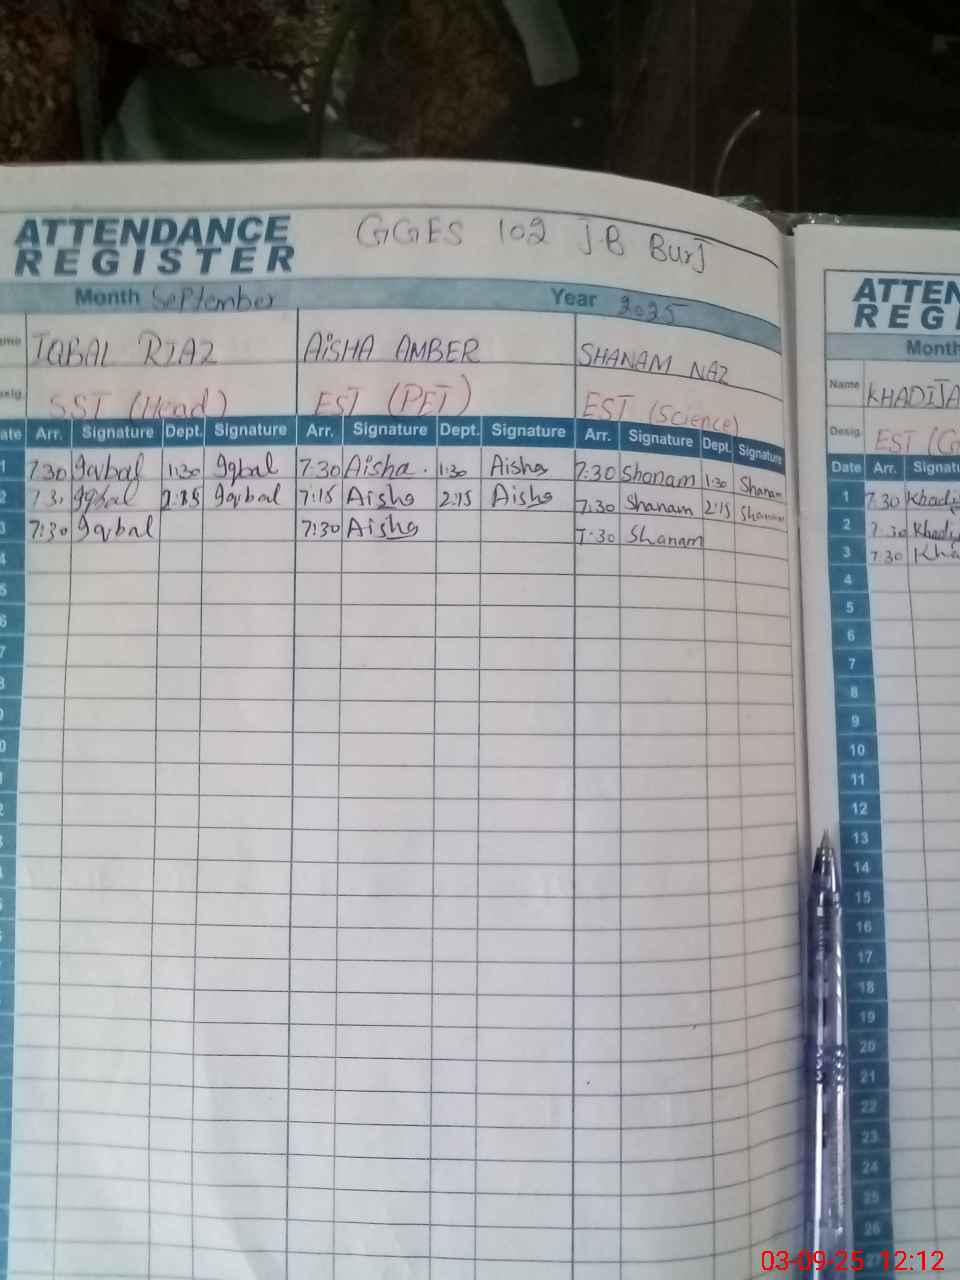 ATTENDANCE REGISTER GGES 102 J-B Burj
Month September Year 2025
IQBAL RIAZ AiSHA AMBER SHANAM NAZ
SST (Head) EST (PET) EST (Science)
Arr. Signature Dept. Signature Arr. Signature Dept. Signature Arr. Signature Dept. Signature
1 7:30 Iqbal 1:30 Iqbal 7:30 Aisha. 1:30 Aisha 7:30 Shanam 1:30 Shanam
2 7:3 Iqbal Iqbal 7:15 Aisha 2:15 Aisha 7:30 Shanam 2:15 Shanam
3 7:30 Iqbal 7:30 Aisha 7:30 Shanam
4
5
6
7
ATTEN
REGI
Month
Name KHADIJA
Desig. EST
Date Arr. Signatu
1 7:30 Khadi
2 7:30 Khadi
3 7:30 Kha
4
5
6
7
8
9
10
11
12
13
14
15
16
17
18
19
20
21
22
23
24
25
26
27
03-09-25 12:12